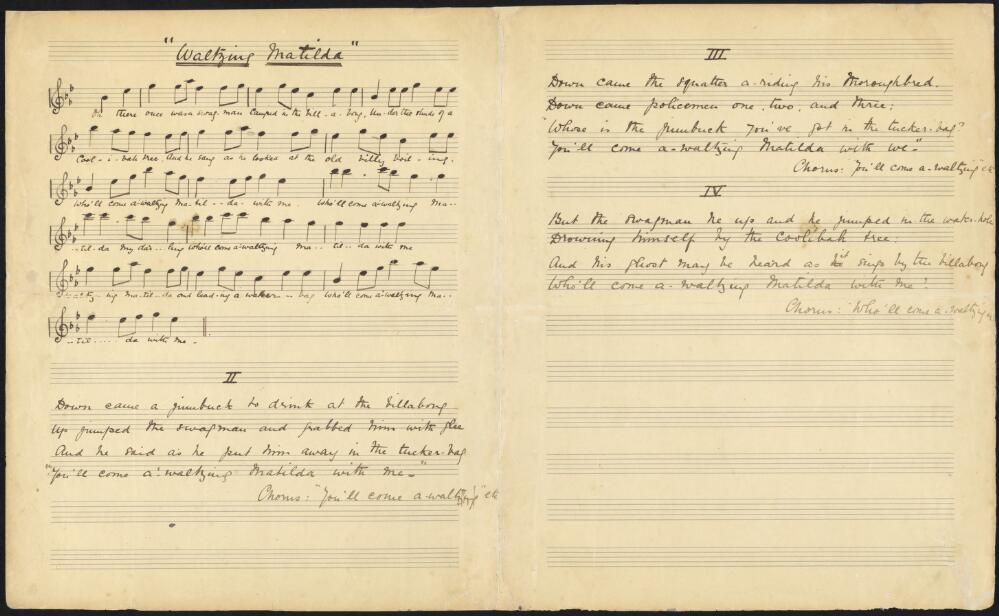 "Waltzing Matilda"
Oh there once was a swag-man Camped in the bill-a-bong, Un-der the shade of a
Cool-i-bah tree. And he sang as he looked at the old billy boil-ing.
Who'll come a-waltzing Ma-til--da-with me. Who'll come a-waltzing Ma--
--til-da my dar--ling who'll come a-waltzing ma--til--da with me
-ing Ma-til-da and lead-ing a water--bag Who'll come a-waltzing Ma--
--til....da with me-
II
Down came a jumbuck to drink at the billabong
Up jumped the swagman and grabbed him with glee
And he said as he put him away in the tucker-bag
"You'll come a-waltzing Matilda with me-"
Chorus: "You'll come a-waltzing" etc
III
Down came the squatter a-riding his thoroughbred.
Down came policemen one, two, and three;
"Whose is the jumbuck you've got in the tucker-bag?
You'll come a-waltzing Matilda with we-"
Chorus: You'll come a-waltzing" etc
IV
But the swagman he up and he jumped in the water-hole
Drowning himself by the coolibah tree;
And his ghost may be heard as it sings by the billabong
Who'll come a-waltzing Matilda with me?
Chorus: Who'll come a-waltzing